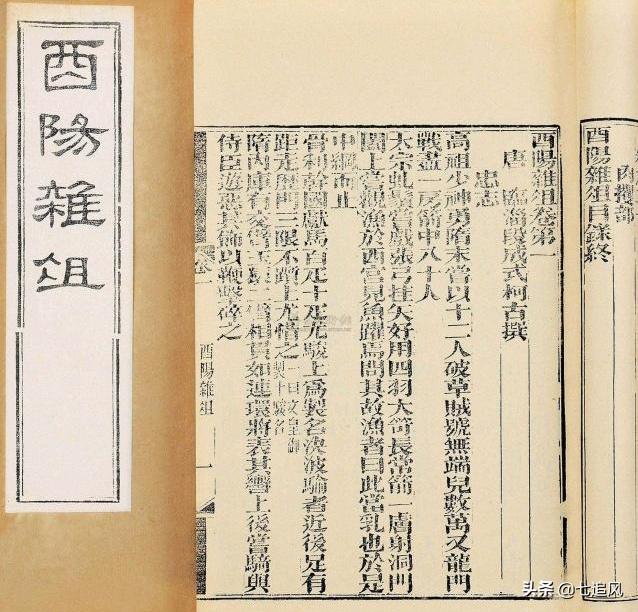 酉陽雜俎
肉攫部
酉陽雜俎目録終
酉陽雜俎卷第一
唐 臨淄段成式柯古撰
忠志
高祖少神勇隋末嘗以十二人破草賊號無端兒數萬又龍門
戰盡一房箭中八十人
太宗虬鬚嘗戲張弓挂矢好用四羽大笴長常箭一膚射洞門
闔上嘗觀漁於西宮見魚躍焉問其故漁者曰此當乳也於是
中網而止
骨利幹國獻馬百疋十疋尤駿上爲製名決波騟者近後足有
距走歷門三限不躓上尤惜之 一曰文皇御製十駿名
隋内庫有交臂玉猿二臂相貫如連環將表其轡上後嘗騎與
侍臣遊惡其飾以鞭擊碎之
卷一
酉陽雜俎
一
头条 @七追风